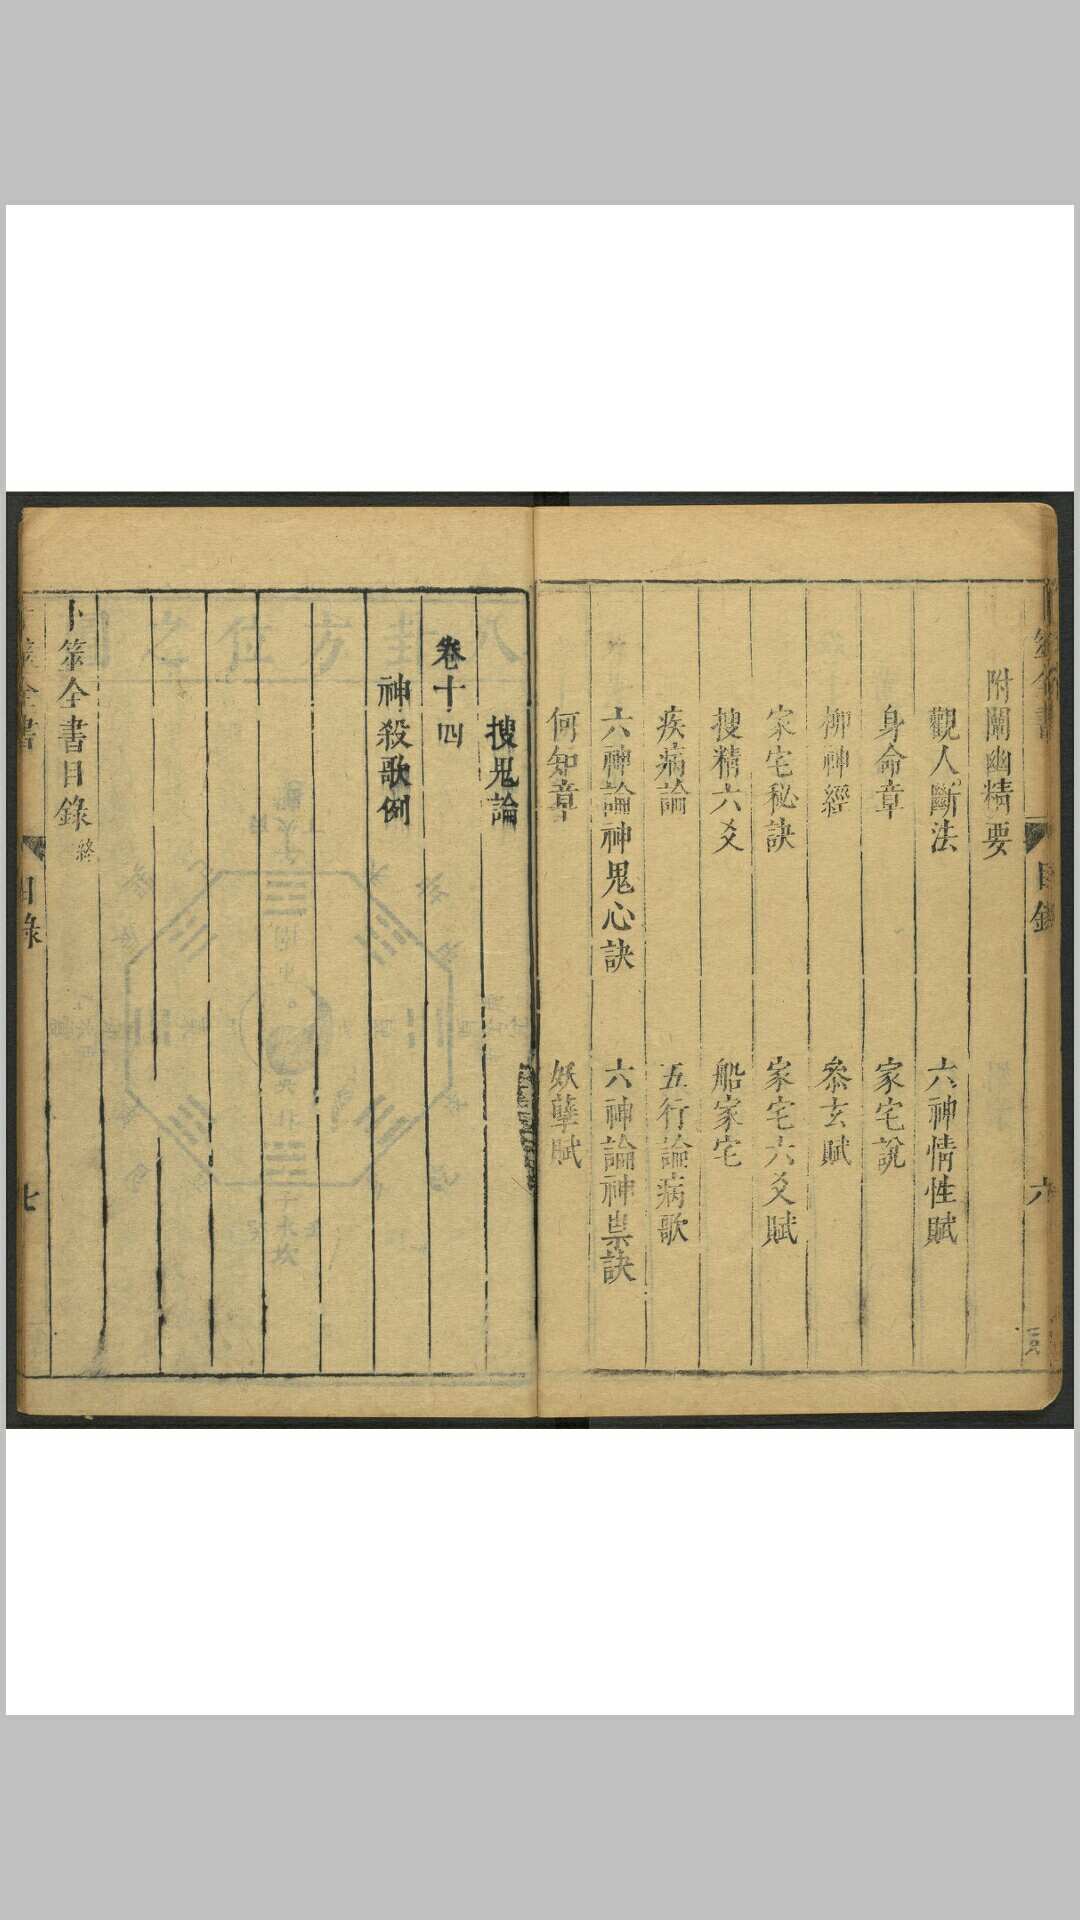 卜筮全書
目錄
六
附闡幽精要
觀人斷法　六神情性賦
身命章　家宅說
柳神經　叅玄賦
家宅秘訣　家宅六爻賦
搜精六爻　船家宅
疾病論　五行論病歌
六神論神鬼心訣　六神論神祟訣
何知章　妖孽賦
搜鬼論
卷十四
神殺歌例
卜筮全書目錄終
目錄
七